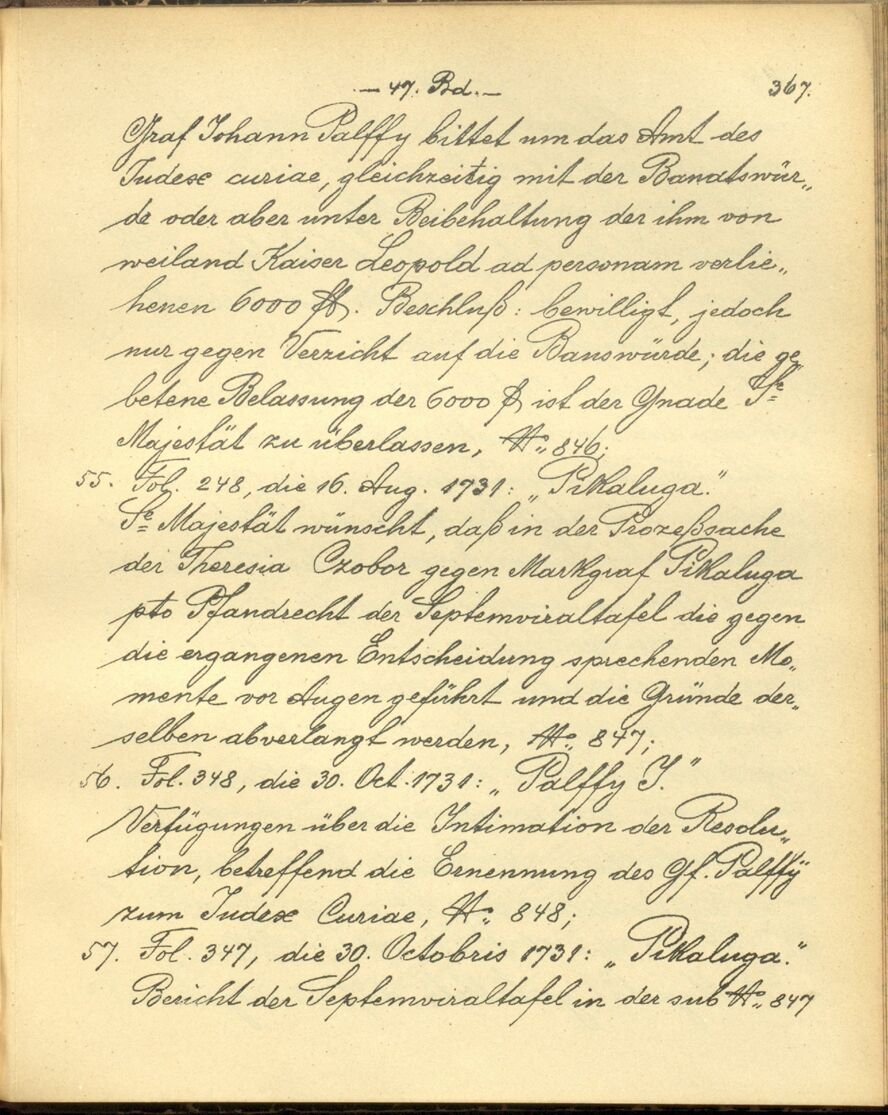 — 47. Bd. — 367.
Graf Johann Palffy bittet um das Amt des
Judex curiae, gleichzeitig mit der Banatswür„
de oder aber unter Beibehaltung der ihm von
weiland Kaiser Leopold ad personam verlie„
henen 6000 fl. Beschluß: bewilligt, jedoch
nur gegen Verzicht auf die Banswürde; die ge„
betene Belassung der 6000 fl ist der Gnade Sr
Majestät zu überlassen, No„ 846;
55. Fol. 248, die 16. Aug. 1731: „Pikaluga."
Se Majestät wünscht, daß in der Prozeßsache
der Theresia Czobor gegen Markgraf Pikaluga
pto Pfandrecht der Septemviraltafel die gegen
die ergangenen Entscheidung sprechenden Mo„
mente vor Augen geführt und die Gründe der„
selben abverlangt werden, No„ 847;
56. Fol. 348, die 30. Oct. 1731: „Palffy J."
Verfügungen über die Intimation der Resolu„
tion, betreffend die Ernennung des Gf. Palffÿ
zum Judex Curiae, No„ 848;
57. Fol. 347, die 30. Octobris 1731: „Pikaluga."
Bericht der Septemviraltafel in der sub No„ 847